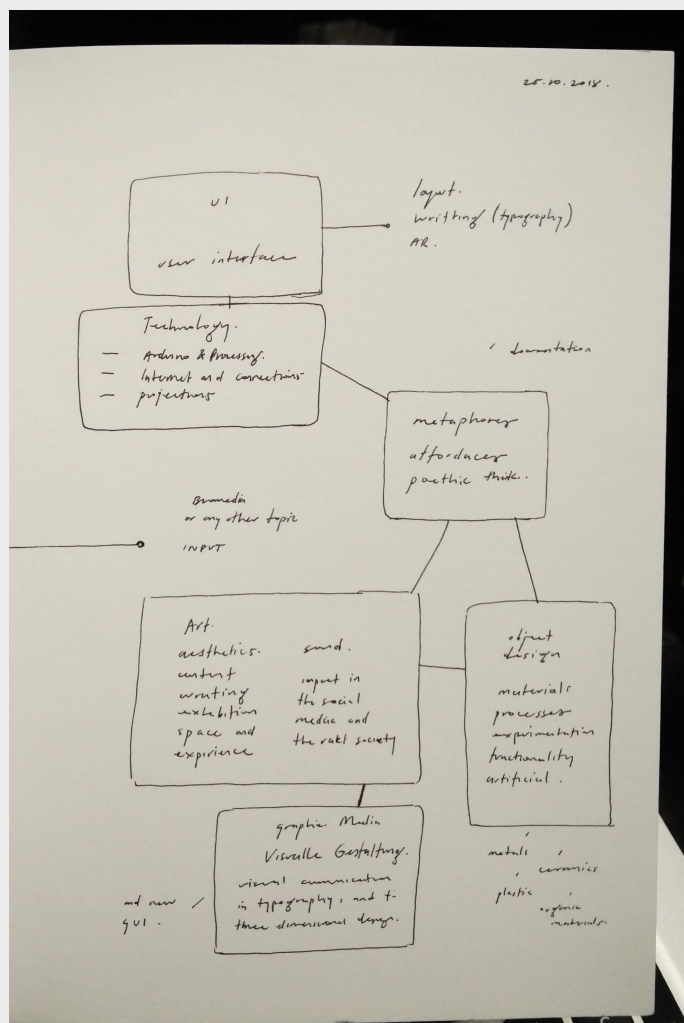 25.10.2018.
UI
user interface
layout.
writting (typography)
AR.
Technology.
— Arduino & Processing.
— Internet and connections
— projections
metaphores
affordaces
poethic think.
Biomedia
or any other topic
INPUT
Art.
aesthetics.
content
writing
exhibition
space and
experience
sound.
impact in
the social
media and
the society
object
design
materials
processes
experimentation
functionality
artificial.
metals
ceramics
plastic
organic
materials.
graphic Media
Visuelle Gestaltung.
visual communication
in typography, and
three dimensional design.
and new
GUI.